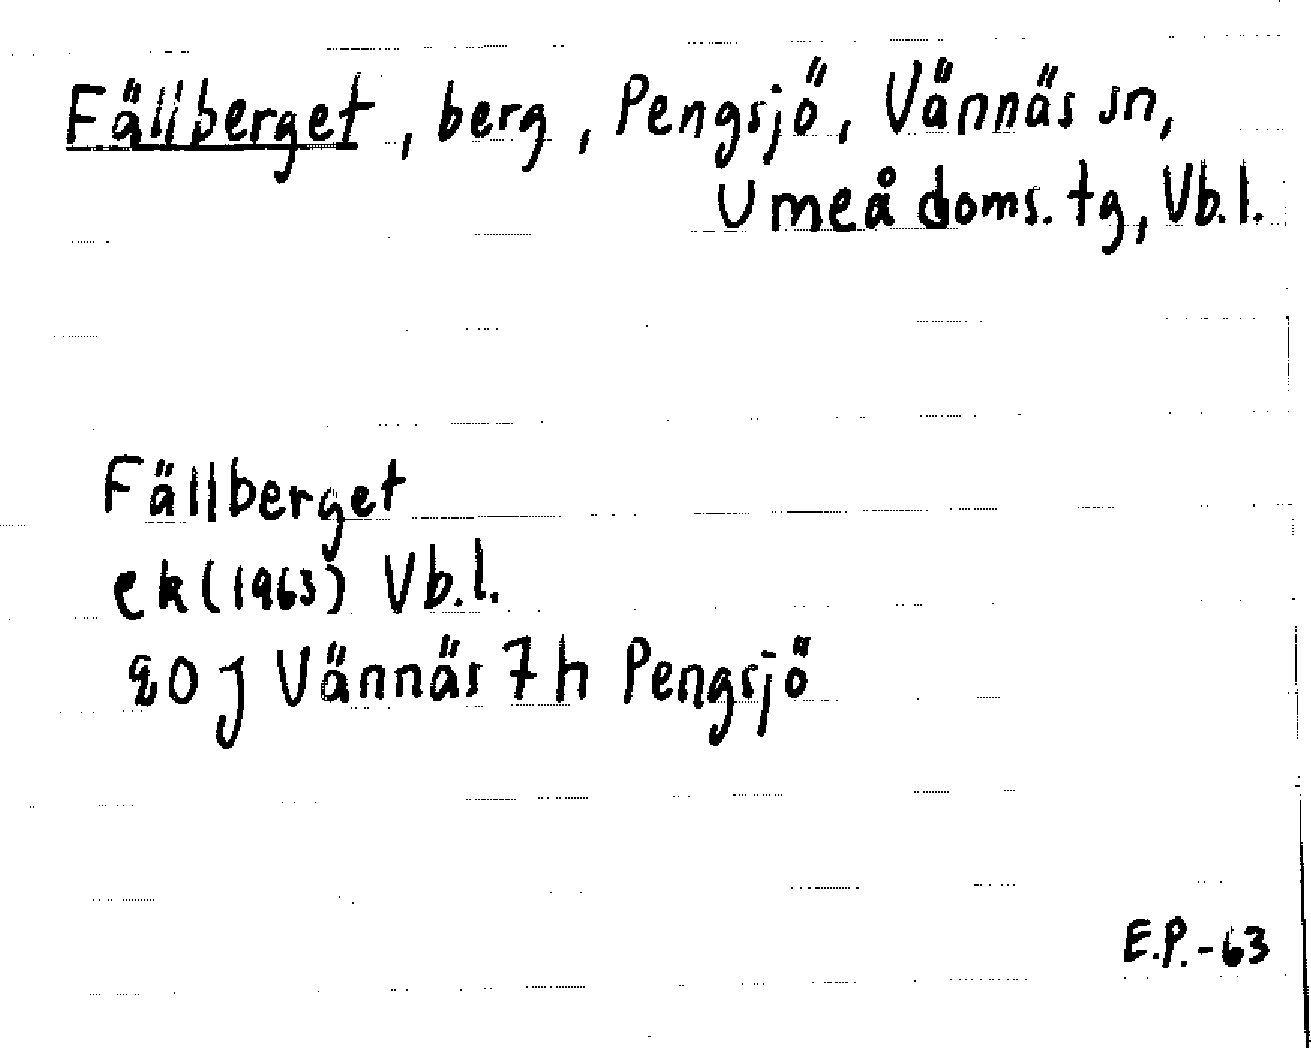 Fällberget, berg, Pengsjö, Vännäs sn,
Umeå doms. tg, Vb.l.
Fällberget
ek (1963) Vb.l.
20 J Vännäs 7h Pengsjö
E.P.-63